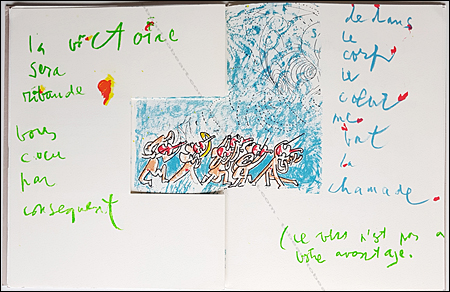 la victoire
sera
ribaude
vous
cocu
par
conséquent
dedans
le
corps
le
cœur
me
bat
la
chamade.
(ce vers n'est pas a
votre avantage.